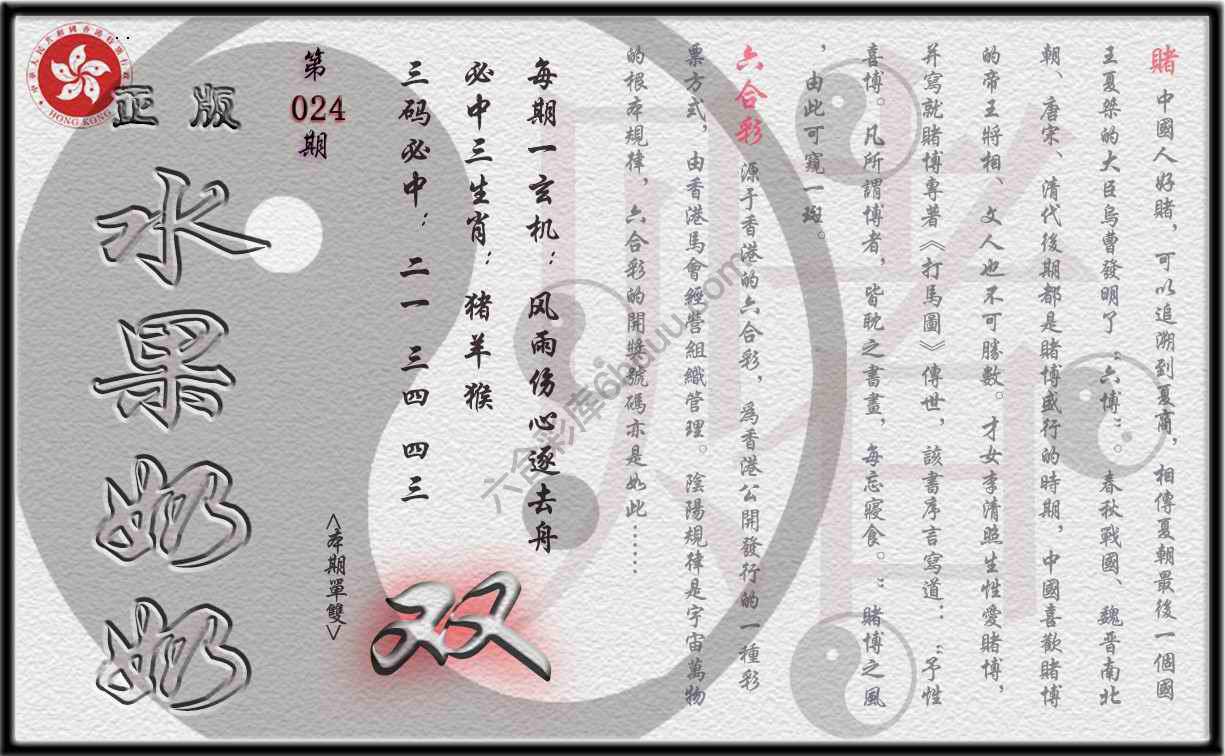 賭 中國人好賭，可以追溯到夏商，相傳夏朝最後一個國
王夏桀的大臣烏曹發明了“六博”。春秋戰國、魏晋南北
朝、唐宋、清代後期都是賭博盛行的時期，中國喜歡賭博
的帝王將相、文人也不可勝數。才女李清照生性愛賭博，
并寫就賭博專著《打馬圖》傳世，該書序言寫道：“予性
喜博。凡所謂博者，皆耽之書畫，每忘寢食。”賭博之風
，由此可窺一斑。
六合彩 源于香港的六合彩，爲香港公開發行的一種彩
票方式，由香港馬會經營組織管理。陰陽規律是宇宙萬物
的根本規律，六合彩的開獎號碼亦是如此……
每期一玄机：风雨伤心逐去舟
必中三生肖：猪羊猴
三码必中：二一 三四 四三
<本期單雙>
双
第
024
期
正版
水果奶奶
HONG KONG
六合彩库6hduu.com